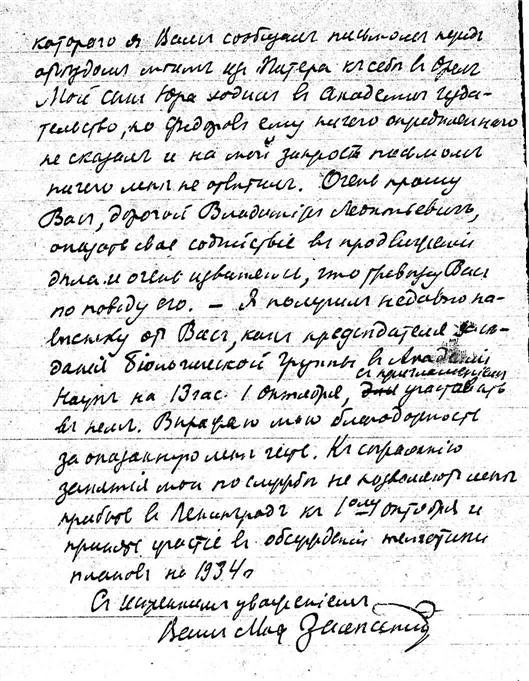 которого я Вамъ сообщалъ письмомъ передъ
отъѣздомъ моимъ изъ Питера къ себѣ въ Орелъ
Мой сынъ Юра ходилъ въ Академич изда-
тельство, но Федоровъ ему ничего опредѣленнаго
не сказалъ и на мой запросъ письмомъ
ничего мнѣ не отвѣтилъ. Очень прошу
Васъ, дорогой Владиміръ Леонтьевичъ,
оказать свое содѣйствіе въ продвиженіи
дѣла и очень извиняюсь, что тревожу Васъ
по поводу его. — Я получилъ недавно по-
вѣстку отъ Васъ, какъ предсѣдателя засѣ-
даній біологической группы въ Академіи
Наукъ на 13 час. 1 Октября, съ приглашеніемъ участвовать
въ немъ. Выражаю мою благодарность
за оказанную мнѣ честь. Къ сожалѣнію
занятія мои по службѣ не позволяютъ мнѣ
прибыть въ Ленинградъ къ 1ому Октября и
принять участіе въ обсужденіи тематики
плановъ на 1934 г
Съ искреннимъ уваженіемъ
Вамъ